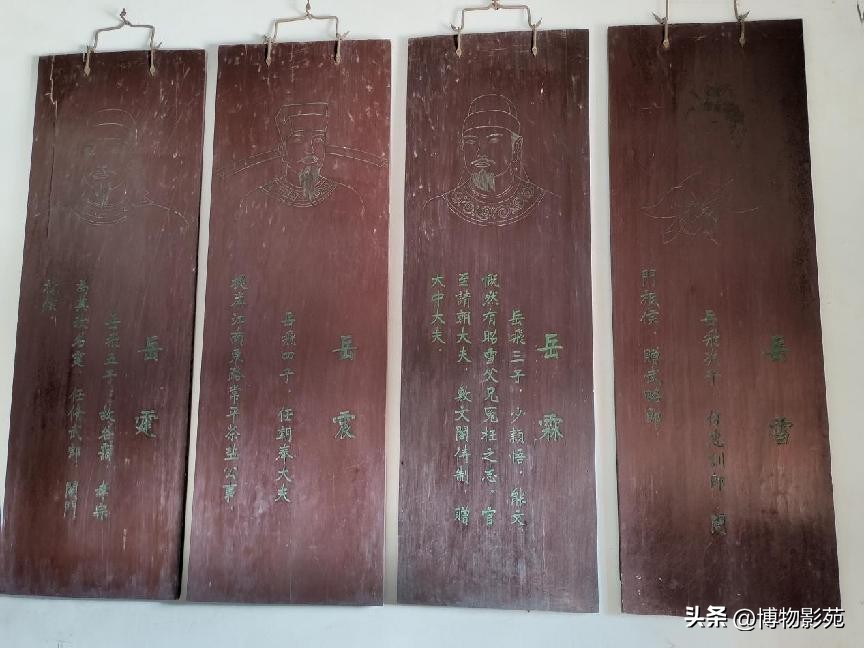 岳雷
岳飛次子 任忠訓郎 閤
門祗侯，贈武略郎
岳霖
岳飛三子，少穎悟，能文
慨然有昭雪父兄冤枉之志，官
至請朝大夫，敷文閣侍制，贈
大中大夫．
岳震
岳飛四子，任朝奉大夫
提举江南東路常平茶盐公事
岳霆
岳飛五子，故名靄，孝宗
為其改名霆 任修武郎 閤門
祗侯
头条 @博物影苑